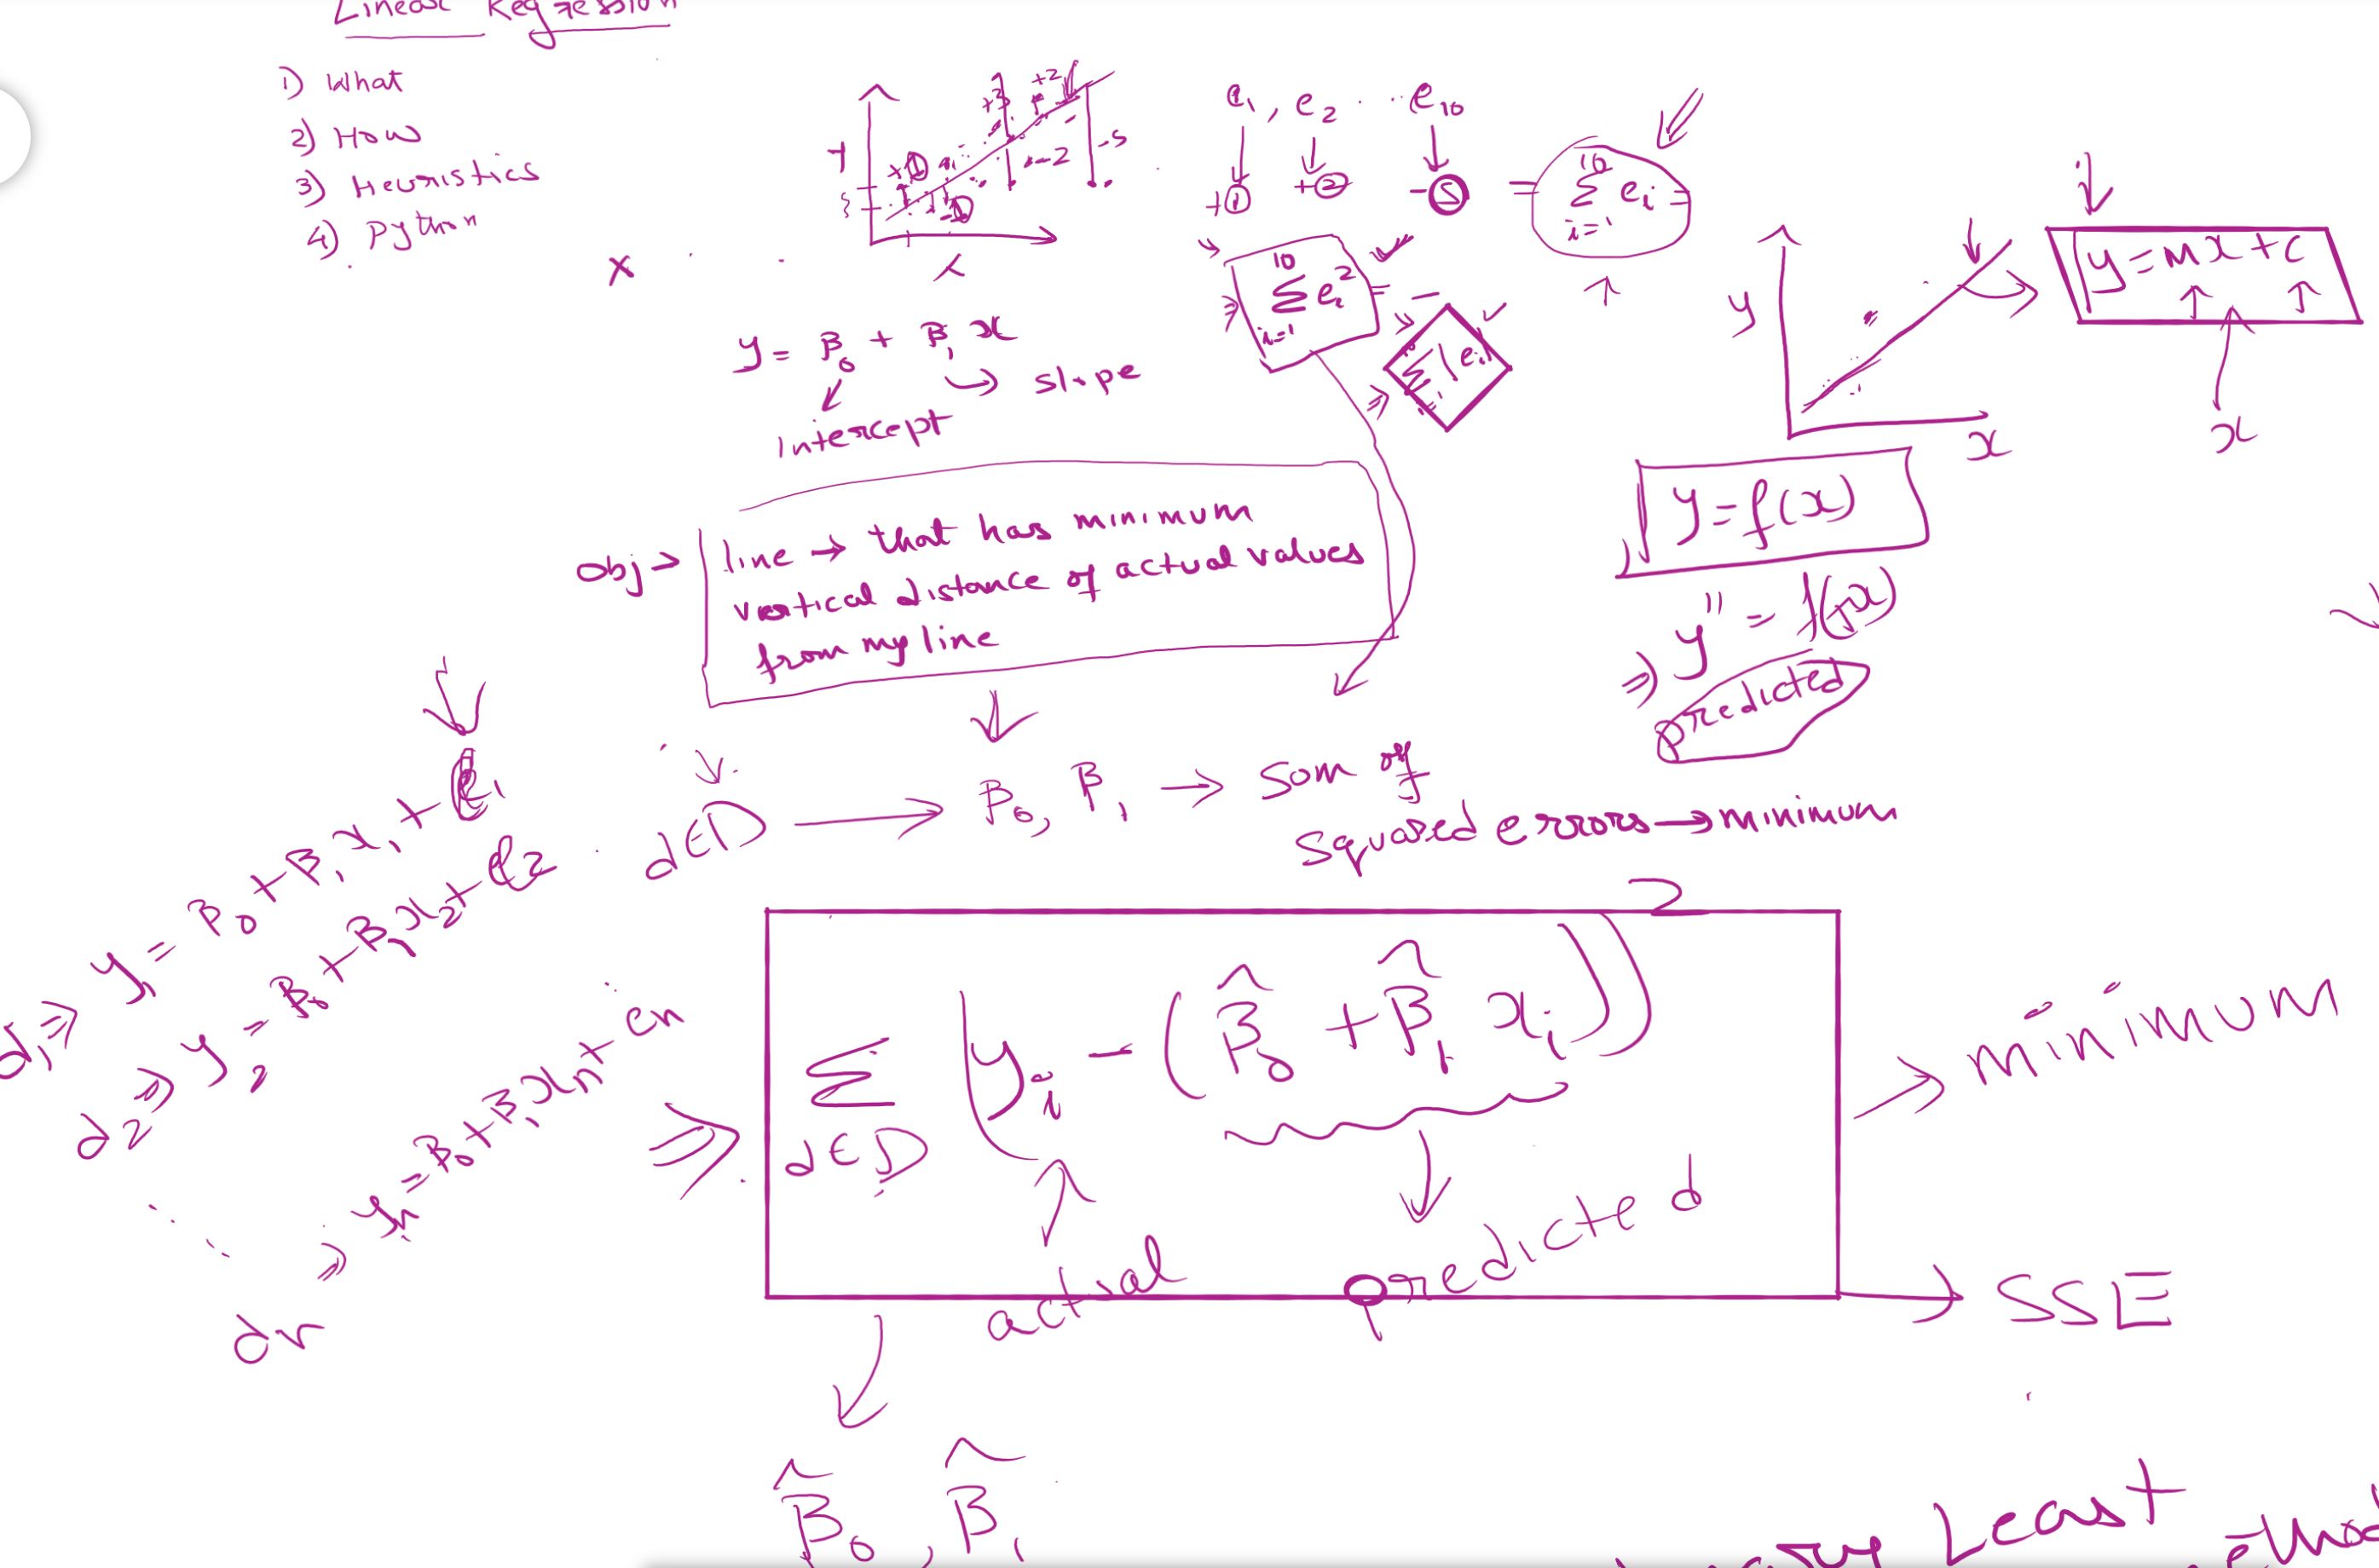 Linear Regression
1) What
2) How
3) Heuristics
4) Python
x
y
x
+1
-1
+3
-2
+2
-5
e₁, e₂ .. e₁₀
+1 +2 -5 = Σ_{i=1}^{10} e_i =
Σ_{i=1}^{10} e_i² =
Σ |e_i|
y = β₀ + β₁ x
Intercept
slope
y
x
y = mx + c
x
y = f(x)
⇒ y" = f(x)
predicted
Obj → line → that has minimum
vertical distance of actual values
from my line
d ∈ D → β₀, β₁ → som of
squared errors → minimum
d₁ ⇒ y₁ = β₀ + β₁x₁ + e₁
d₂ ⇒ y₂ = β₀ + β₁x₂ + e₂
dn ⇒ yn = β₀ + β₁xn + en
⇒ Σ_{d∈D} (y_i - (β̂₀ + β̂₁ x_i))² → minimum
actual
predicted
→ SSE
β̂₀, β̂₁
Least